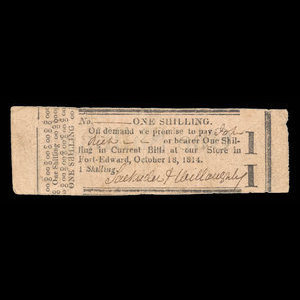 No. ONE SHILLING.
On demand we promise to pay
or bearer One Shil-
ling in Current Bills at our Store in
Fort-Edward, October 18, 1814.
1 Shilling.
& Willoughby
1
1
One Shilling